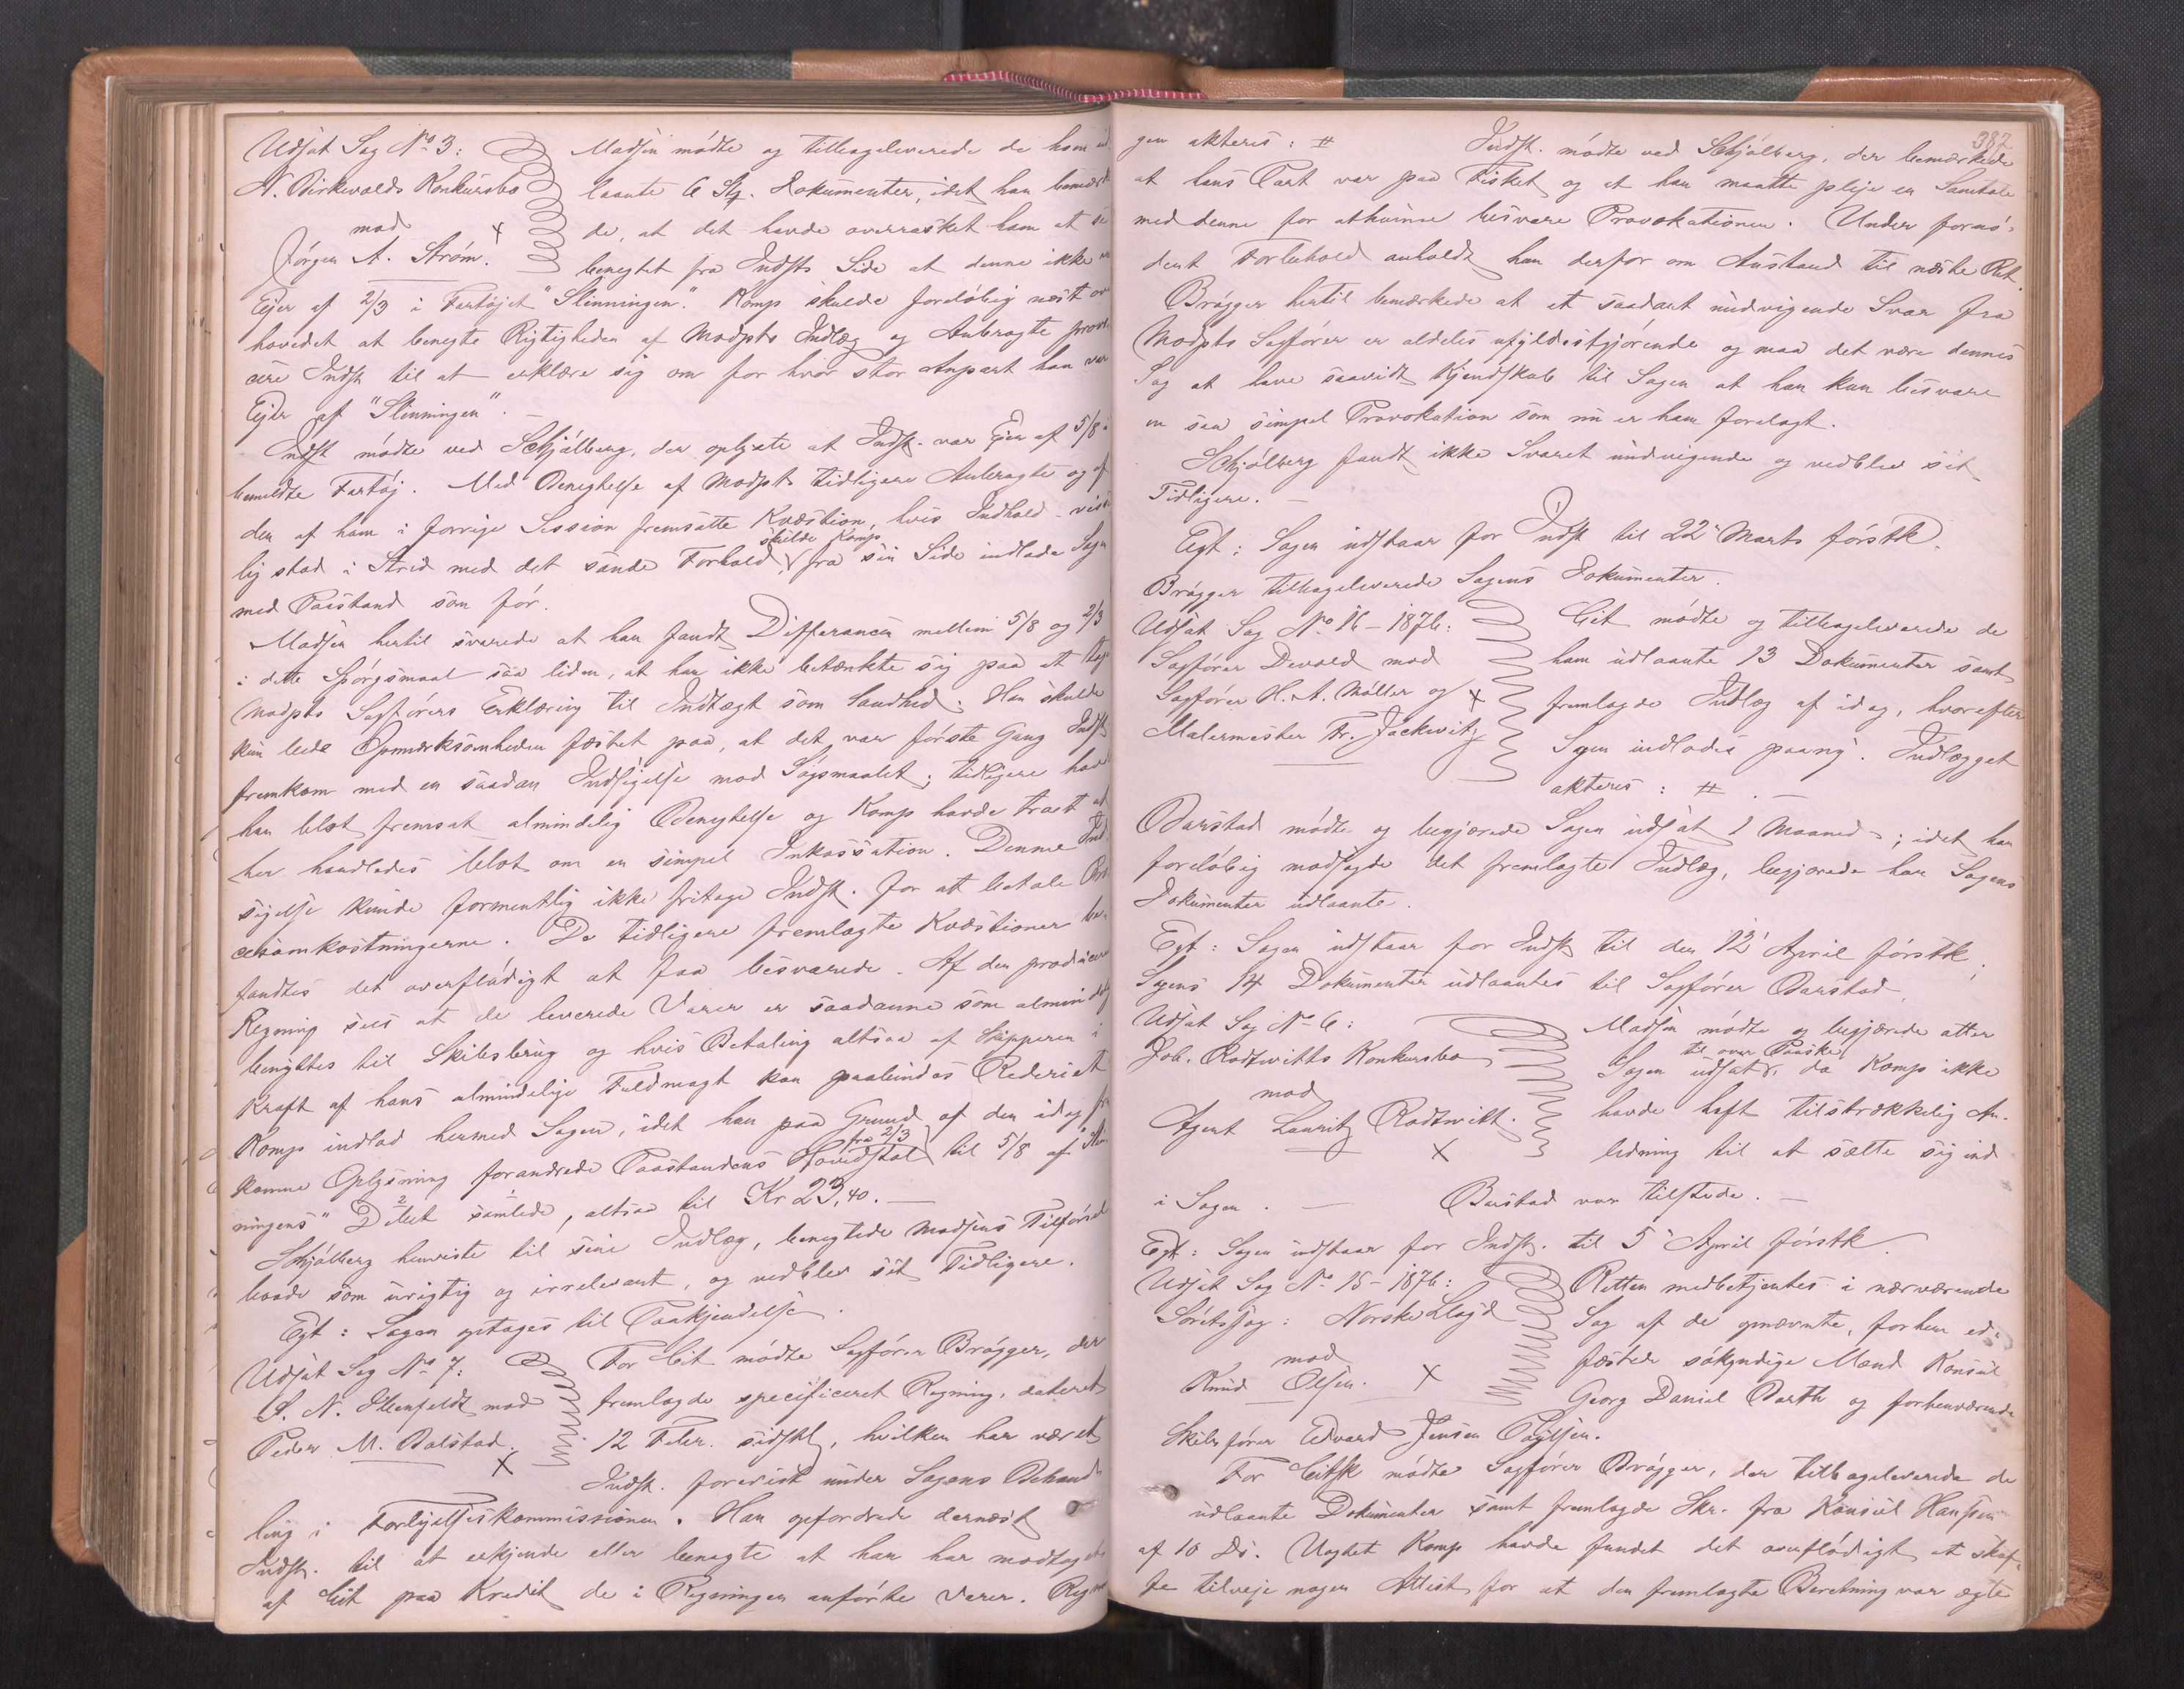 Udsat Sag No 3:
A. Birkevolds Konkursbo
mod
Jørgen A. Strøm. X
Madsen mødte og tilbageleverede de ham ud-
laante 6 St. Dokumenter, idet han bemærke-
de, at det havde overrasket ham at se
benegtet fra Indsts Side at denne ikke
Ejer af 2/3 i Fartøjet "Slinningen." Komp skulde foreløbig næst
hovedet at benegte Rigtigheden af Modpts Indlæg og Anbragte provo-
cere Indst til at erklære sig om for hvor stor Anpart han var
Ejer af "Slinningen". —
Indst mødte ved Schjølberg, der oplyste at Indst. var Ejer af 5/8 i
bemeldte Fartøj. Med Benegtelse af Modpts tidligere Anbragte og af
den af ham i forrige Session fremsatte Kvæstion, hvis Indhold
lig stod i Strid med det sande Forhold, skulde Komp fra sin Side indlade Sagen
med Paastand som før.
Madsen hertil svarede at han fandt Differancen mellem 5/8 og 2/3
i dette Spørgsmaal saa liden, at han ikke betænkte sig paa at tage
Modpts Sagførers Erklæring til Indtægt som Sandhed. Han skulde
kun bede Opmærksomheden fæstet paa, at det var første Gang Indst
fremkom med en saadan Indsigelse mod Søgsmaalet; tidligere havde
han blot fremsat almindelig Benegtelse og Komp havde troet at
her handledes blot om en simpel Inkassation. Denne Ind-
sigelse kunde formentlig ikke fritage Indst. for at betale Pro-
cesomkostningerne. De tidligere fremlagte Kvæstioner be-
fandtes det overflødigt at faa besvarede. Af den producerede
Regning sees at de leverede Varer er saadanne som almindelig
benyttes til Skibsbrug og hvis Betaling altsaa af Skipperen i
Kraft af hans almindelige Fuldmagt kan paabindes Rederiet
Komp indlod hermed Sagen, idet han paa Grund af den idag frem-
komne Oplysning forandrede Paastandens Hovedstol fra 2/3 til 5/8 af "Slin-
ningens" Debet samlede, altsaa til Kr 23,40. —
Schjølberg henviste til sine Indlæg, benegtede Madsens Tilførsel
baade som urigtig og irrelevant, og vedblev sit Tidligere.
Egt: Sagen optages til Paakjendelse.
Udsat Sag No 7:
P. N. Ellenfeldt mod
Peder M. Balstad. X
For Cit. mødte Sagfører Brøgger, der
fremlagde specificeret Regning, dateret
12 Febr. sidstl, hvilken har været
Indst. forevist under Sagens Behand-
ling i Forligelseskommissionen. Han opfordrede dernæst
Indst. til at erkjende eller benegte at han har modtaget
af Cit paa Kredit de i Regningen anførte Varer. Regnin-
387
gen akteres: # Indst. mødte ved Schjølberg, der bemærkede
at hans Part var paa Fisket og at han maatte pleje en Samtale
med denne for at kunne besvare Provokationen. Under fornø-
dent Forbehold anholdt han derfor om Anstand til næste Ret.
Brøgger hertil bemærkede at et saadant undvigende Svar fra
Modpts Sagfører er aldeles ufyldestgjørende og maa det være dennes
Sag at have saavidt Kjendskab til Sagen at han kan besvare
en saa simpel Provokation som nu er ham forelagt.
Schjølberg fandt ikke Svaret undvigende og vedblev sit
Tidligere. —
Egt: Sagen udstaar for Indst til 22 Marts førstk.
Brøgger tilbageleverede Sagens Dokumenter.
Udsat Sag No 16 - 1876:
Sagfører Devold mod
Sagfører H. A. Møller og X
Malermester Fr. Jackwitz
Cit mødte og tilbageleverede de
ham udlaante 13 Dokumenter samt
fremlagde Indlæg af idag, hvorefter
Sagen indlodes paany. Indlægget
akteres: #. —
Barstad mødte og begjærede Sagen udsat 1 Maaned; idet han
foreløbig modsagde det fremlagte Indlæg, begjærede han Sagens
Dokumenter udlaante.
Egt: Sagen udstaar for Indst til den 12 April førstk;
Sagens 14 Dokumenter udlaantes til Sagfører Barstad.
Udsat Sag No 6:
Joh. Rodtwitts Konkursbo
mod
Agent Lauritz Rodtwitt. X
Madsen mødte og begjærede atter
Sagen udsat til over Paaske, da Komp ikke
havde haft tilstrækkelig An-
ledning til at sætte sig ind
i Sagen. — Barstad var tilstede. —
Egt: Sagen udstaar for Indst. til 5 April førstk.
Udsat Sag No 15 - 1876:
Søretssag: Norske Lloyd
mod
Knud Olsen. X
Retten medbetjentes i nærværende
Sag af de opnævnte, forhen ed-
fæstede søkyndige Mænd Konsul
Georg Daniel Barth og forhenværende
Skibsfører Edvard Jensen Poulsen.
For Citsk mødte Sagfører Brøgger, der tilbageleverede de
udlaante Dokumenter samt fremlagde Skr. fra Konsul Hansen
af 10 Ds. Uagtet Komp havde fundet det overflødigt at skaf-
fe tilveje nogen Attest for at den fremlagte Beretning var ægte